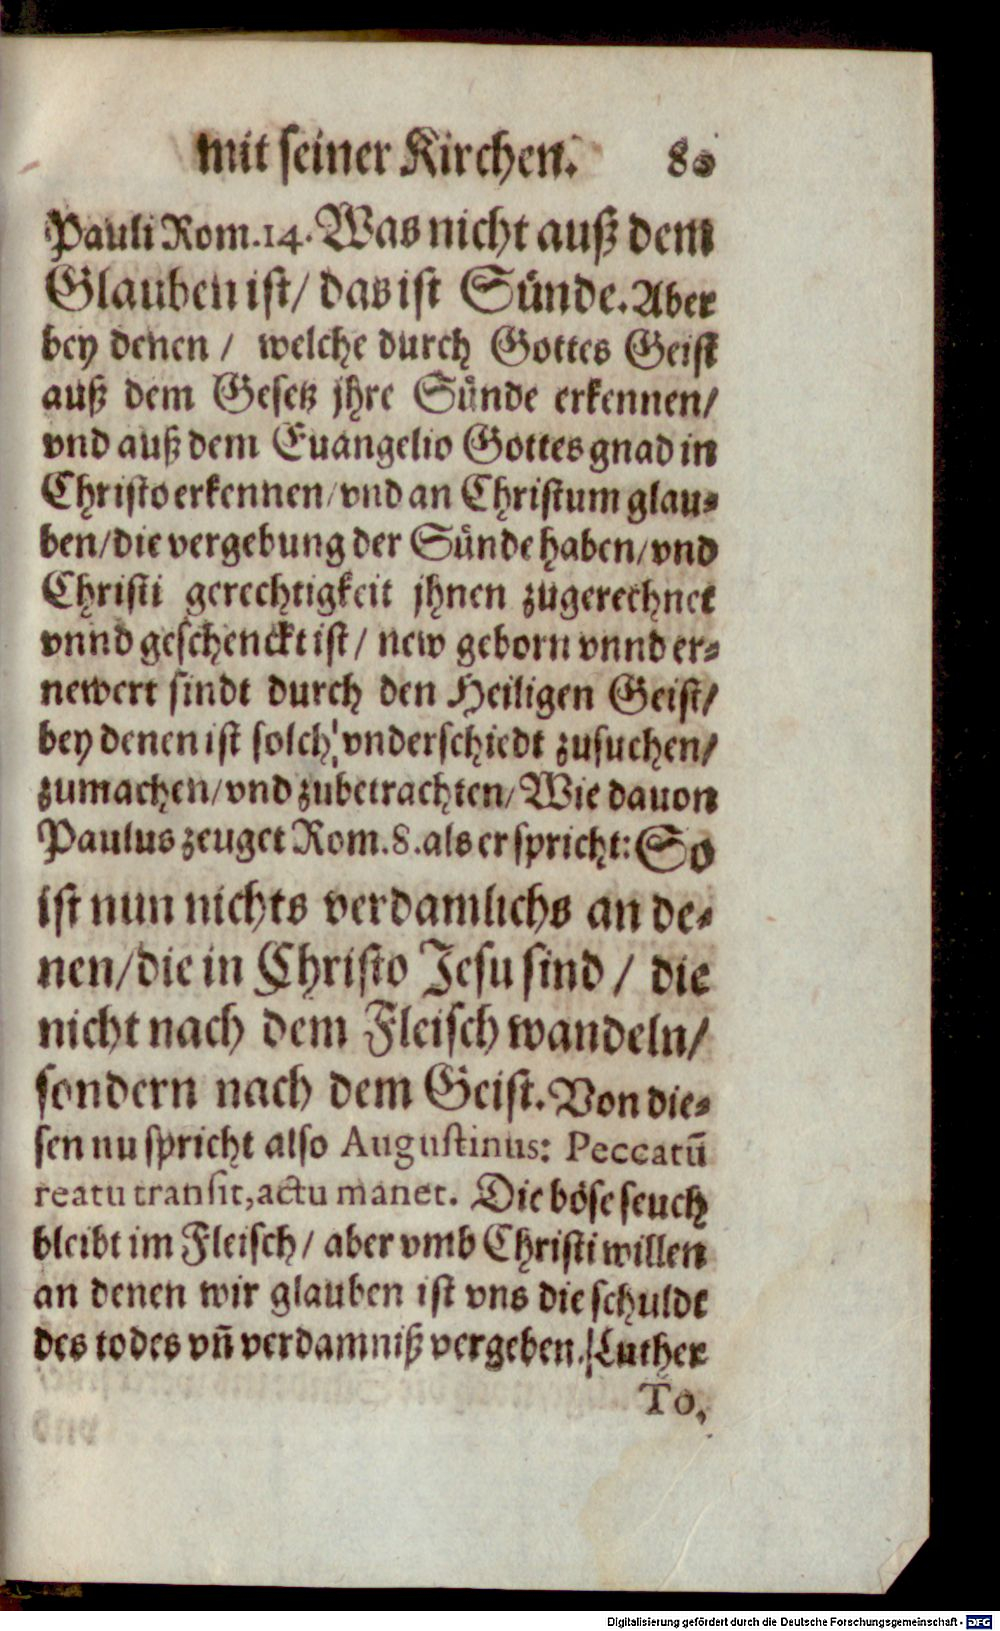 mit seiner Kirchen. 80
Pauli Rom.14. Was nicht auß dem
Glauben ist/ das ist Sünde. Aber
bey denen / welche durch Gottes Geist
auß dem Gesetz jhre Sünde erkennen/
vnd auß dem Euangelio Gottes gnad in
Christo erkennen/vnd an Christum glau-
ben/die vergebung der Sünde haben/vnd
Christi gerechtigkeit jhnen zugerechnet
vnnd geschenckt ist/ new geborn vnnd er-
newert sindt durch den Heiligen Geist/
bey denen ist solch vnderschiedt zusuchen/
zumachen/vnd zubetrachten/Wie dauon
Paulus zeuget Rom.8.als er spricht: So
ist nun nichts verdamlichs an de-
nen/die in Christo Jesu sind/ die
nicht nach dem Fleisch wandeln/
sondern nach dem Geist. Von die-
sen nu spricht also Augustinus: Peccatũ
reatu transit,actu manet. Die böse seuch
bleibt im Fleisch/ aber vmb Christi willen
an denen wir glauben ist vns die schuldt
des todes vñ verdamniß vergeben. Luther
To.
Digitalisierung gefördert durch die Deutsche Forschungsgemeinschaft - DFG